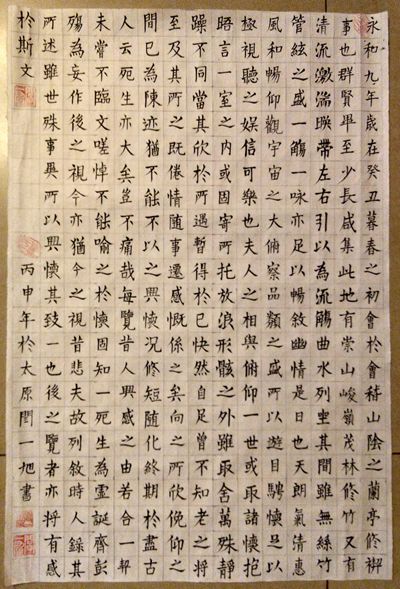 永和九年歲在癸丑暮春之初會於會稽山陰之蘭亭修禊
事也群賢畢至少長咸集此地有崇山峻嶺茂林修竹又有
清流激湍暎帶左右引以為流觴曲水列坐其間雖無絲竹
管絃之盛一觴一咏亦足以暢敘幽情是日也天朗氣清惠
風和暢仰觀宇宙之大俯察品類之盛所以遊目騁懷足以
極視聽之娛信可樂也夫人之相與俯仰一世或取諸懷抱
晤言一室之內或因寄所托放浪形骸之外雖取舍萬殊靜
躁不同當其欣於所遇暫得於己快然自足曾不知老之將
至及其所之既倦情隨事遷感慨係之矣向之所欣俛仰之
間已為陳迹猶不能不以之興懷況修短隨化終期於盡古
人云死生亦大矣豈不痛哉每覽昔人興感之由若合一契
未嘗不臨文嗟悼不能喻之於懷固知一死生為虛誕齊彭
殤為妄作後之視今亦猶今之視昔悲夫故列敘時人錄其
所述雖世殊事異所以興懷其致一也後之覽者亦將有感
於斯文 丙申年於太原閆一旭書